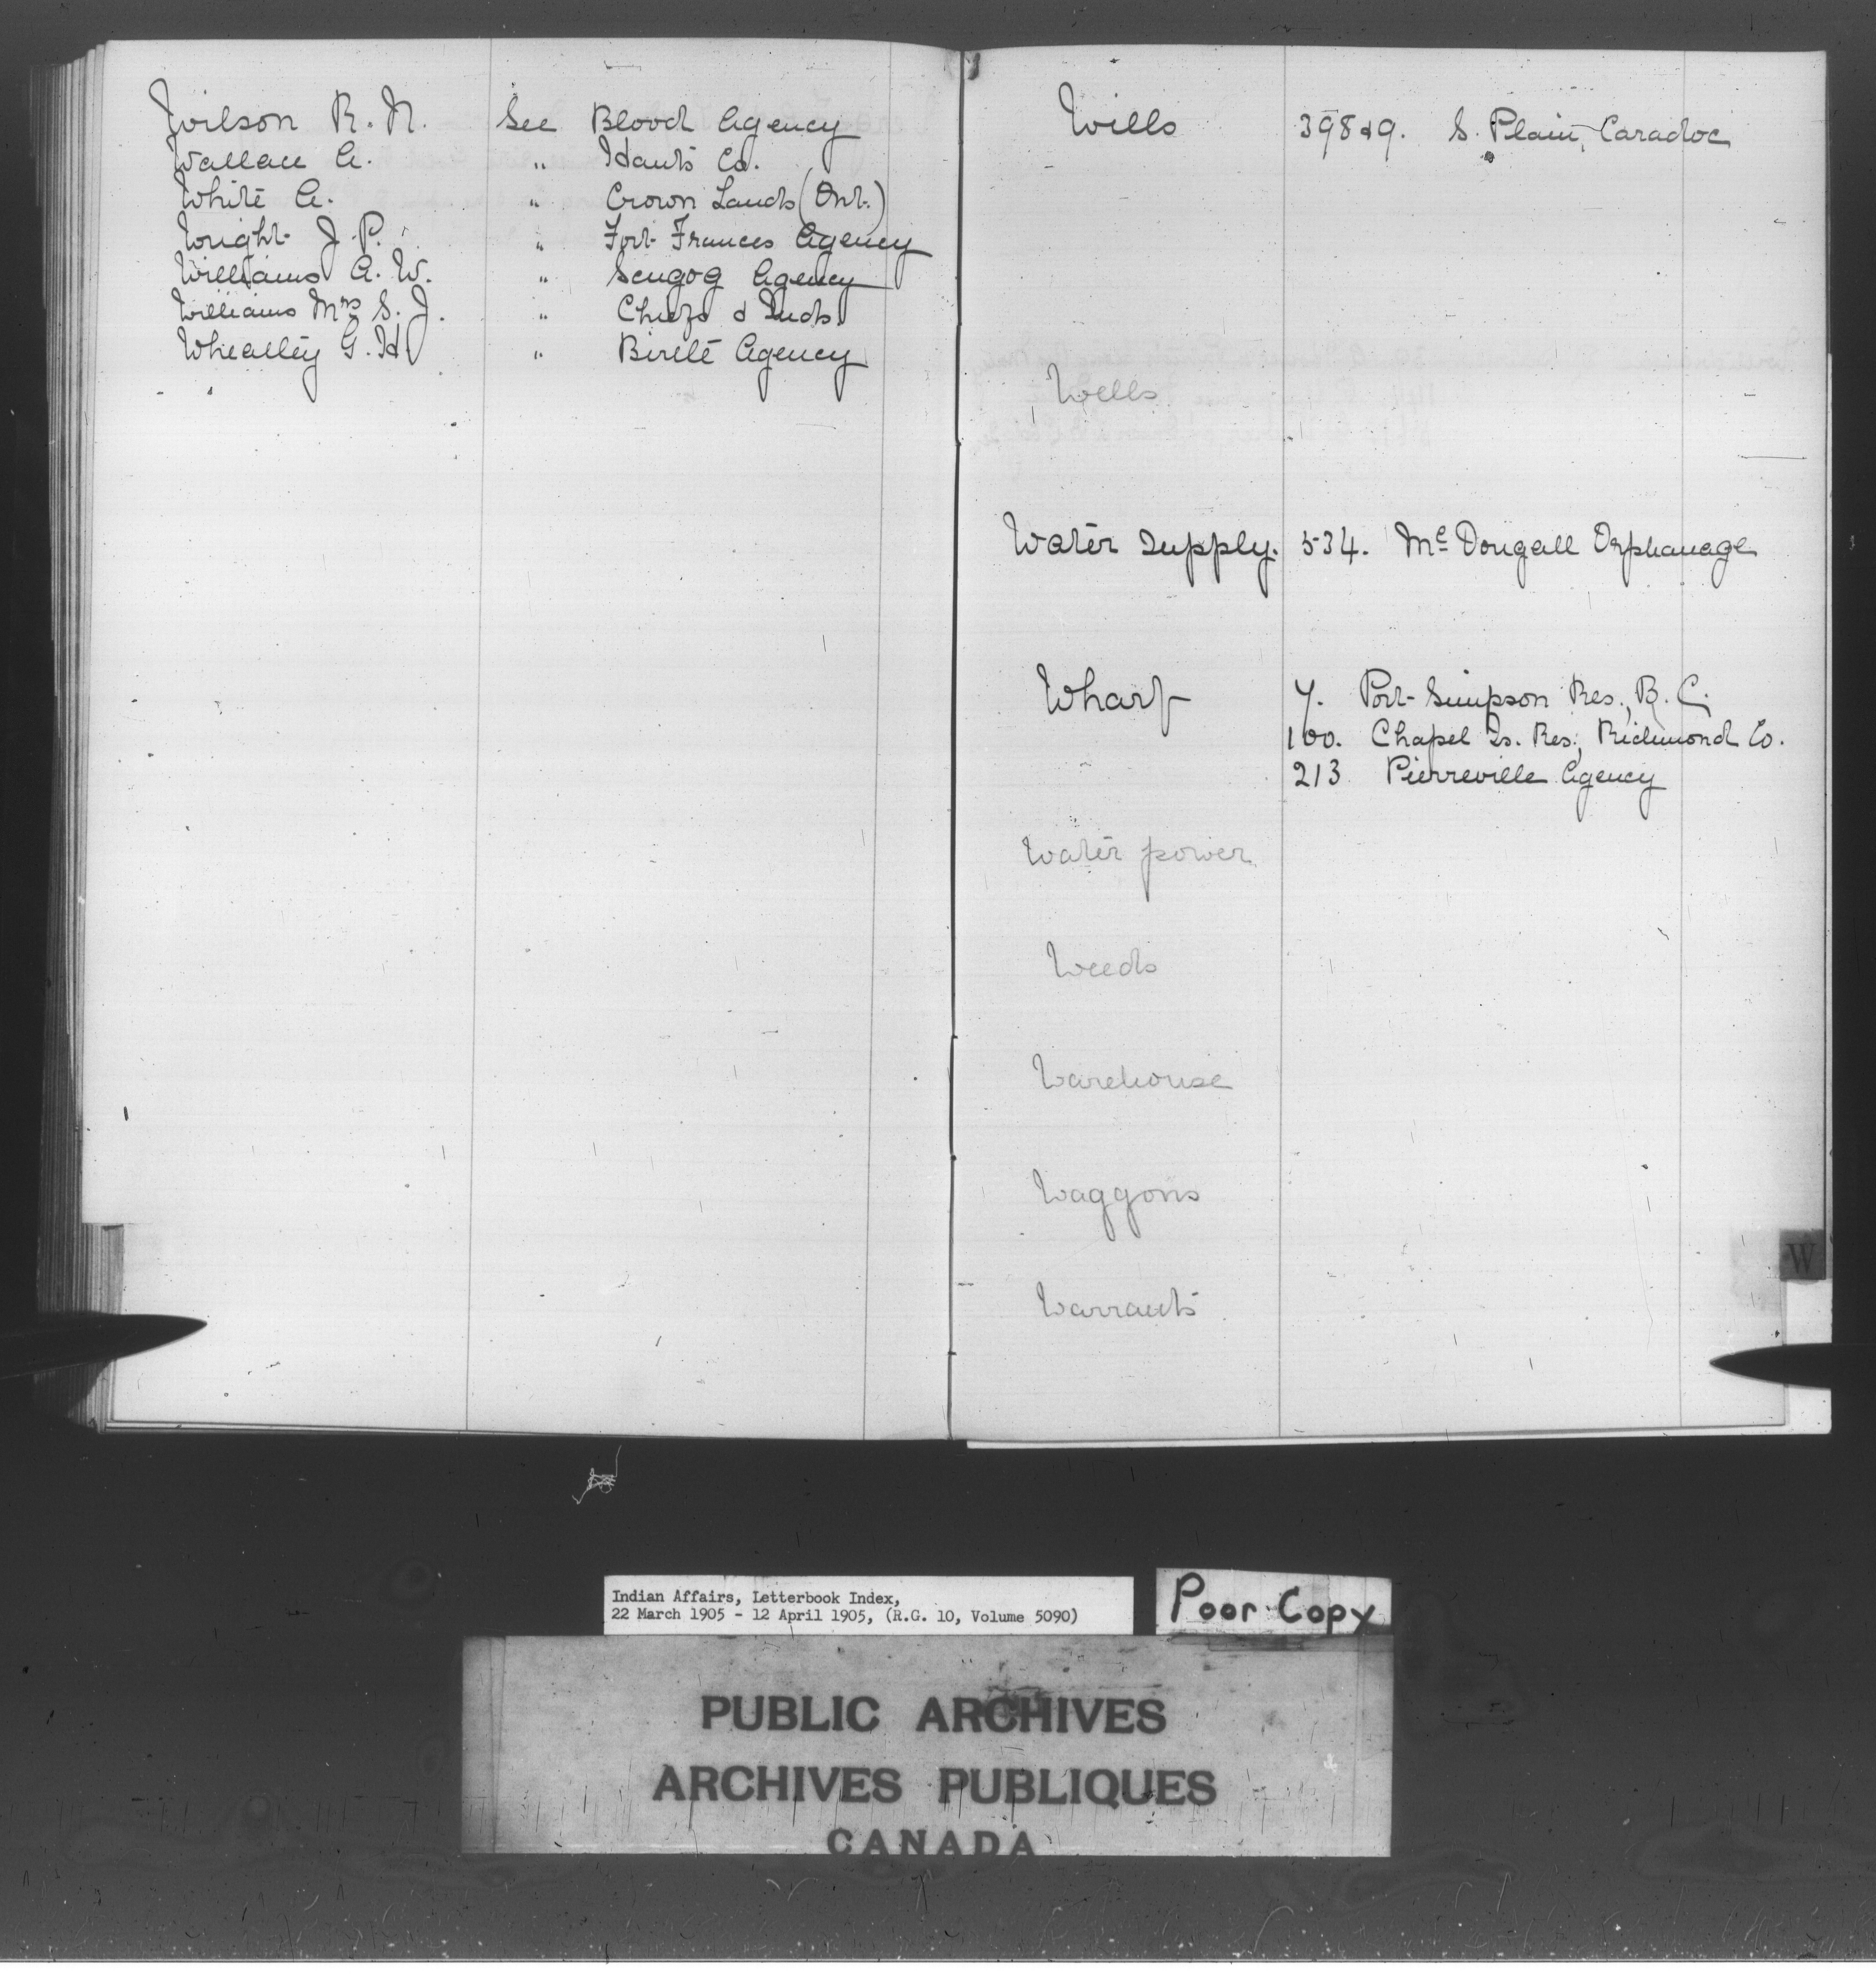 Wilson R. N. See Blood Agency
Wallace A. " Hants Co.
White A. " Crown Lands (Ont.)
Wright J. P. " Fort Frances Agency
Williams A. W. " Scugog Agency
Williams Mrs S. J. " Chiefs & Inds.
Wheatley G. H. " Birtle Agency
Wills 398&9. S. Plain, Caradoc
Wells
Water Supply. 534. McDougall Orphanage
Wharf 7. Port Simpson Res., B. C.
100. Chapel Is. Res., Richmond Co.
213 Pierreville Agency
Water power
Weeds
Warehouse
Waggons
W
Warrants
Indian Affairs, Letterbook Index,
22 March 1905 - 12 April 1905, (R.G. 10, Volume 5090)
Poor Copy
PUBLIC ARCHIVES
ARCHIVES PUBLIQUES
CANADA